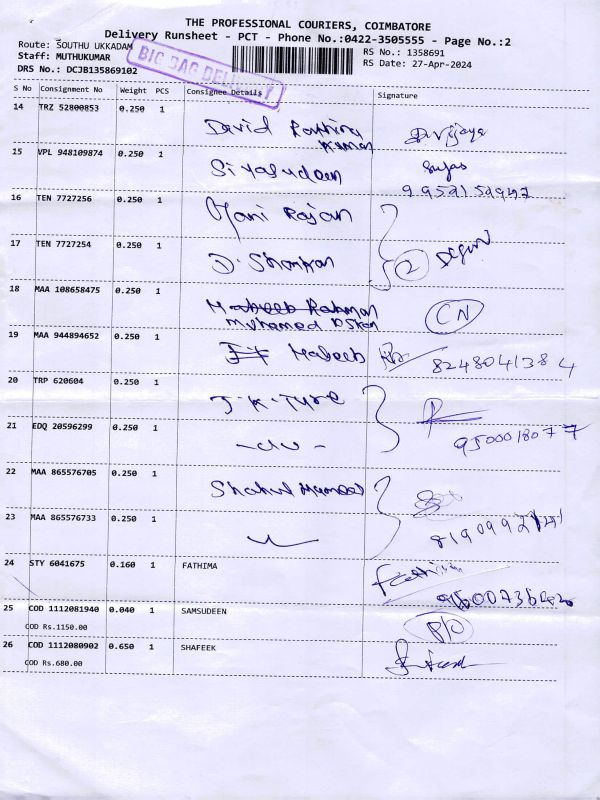 THE PROFESSIONAL COURIERS, COIMBATORE
Delivery Runsheet - PCT - Phone No.:0422-3505555 - Page No.:2
Route: SOUTHU UKKADAM
Staff: MUTHUKUMAR
DRS No.: DCJB135869102
BIG BAG DELIVERY
RS No.: 1358691
RS Date: 27-Apr-2024
S No Consignment No Weight PCS Consignee Details Signature
14 TRZ 52800853 0.250 1
David Kumar
15 VPL 948109874 0.250 1
Siyasudeen
16 TEN 7727256 0.250 1
Mani Rajan
17 TEN 7727254 0.250 1
D. Shankar 2
18 MAA 108658475 0.250 1
Habeeb Rahman CN
Muhamed
19 MAA 944894652 0.250 1
Habeeb 8248041384
20 TRP 620604 0.250 1
J.K. Tyre
21 EDQ 20596299 0.250 1
- do - 9500018077
22 MAA 865576705 0.250 1
Shahul Hameed
23 MAA 865576733 0.250 1
24 STY 6041675 0.160 1 FATHIMA
25 COD 1112081940 0.040 1 SAMSUDEEN
COD Rs.1150.00
26 COD 1112080902 0.650 1 SHAFEEK
COD Rs.680.00